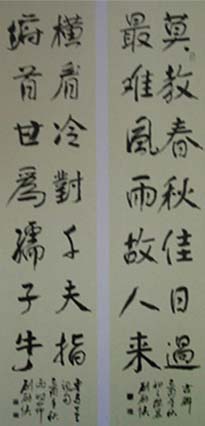 莫教春秋佳日過
最难風雨故人来
橫眉冷對千夫指
俯首甘爲孺子牛